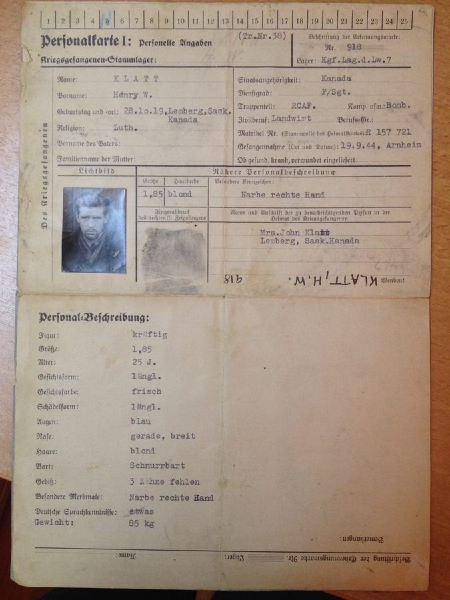 1 2 3 4 5 6 7 8 9 10 11 12 13 14 15 16 17 18 19 20 21 22 23 24 25
Personalkarte I: Personelle Angaben
(Tr.Nr.38)
Beschriftung der Erkennungsmarke
Kriegsgefangenen-Stammlager:
Nr. 918
Lager: Kgf.Lag.d.Lw.7
Des Kriegsgefangenen
Name: KLATT
Vorname: Henry W.
Geburtstag und -ort: 28.10.19, Lemberg, Sask. Kanada
Religion: Luth.
Vorname des Vaters:
Familienname der Mutter:
Staatsangehörigkeit: Kanada
Dienstgrad: F/Sgt.
Truppenteil: RCAF. Komp. usw: Bomb.
Zivilberuf: Landwirt Berufs-Gr.:
Matrikel Nr. (Stammrolle des Heimatstaates) R 157 721
Gefangennahme (Ort und Datum): 19.9.44, Arnheim
Ob gesund, krank, verwundet eingeliefert:
Lichtbild
Nähere Personalbeschreibung
Größe
Haarfarbe
Besondere Kennzeichen:
1,85
blond
Narbe rechte Hand
Fingerabdruck
Name und Anschrift der zu benachrichtigenden Person in der
Heimat des Kriegsgefangenen
Mrs.John Klatt
Lemberg, Sask.Kanada
KLATT, H.W. 918
Wenden!
Personal-Beschreibung:
Figur: kräftig
Größe: 1,85
Alter: 25 J.
Gesichtsform: längl.
Gesichtsfarbe: frisch
Schädelform: längl.
Augen: blau
Nase: gerade, breit
Haare: blond
Bart: Schnurrbart
Gebiß: 3 Zähne fehlen
Besondere Merkmale: Narbe rechte Hand
Deutsche Sprachkenntnisse: etwas
Gewicht: 85 kg
Bemerkungen:
Beschriftung der Erkennungsmarke Nr.
Lager:
Name: